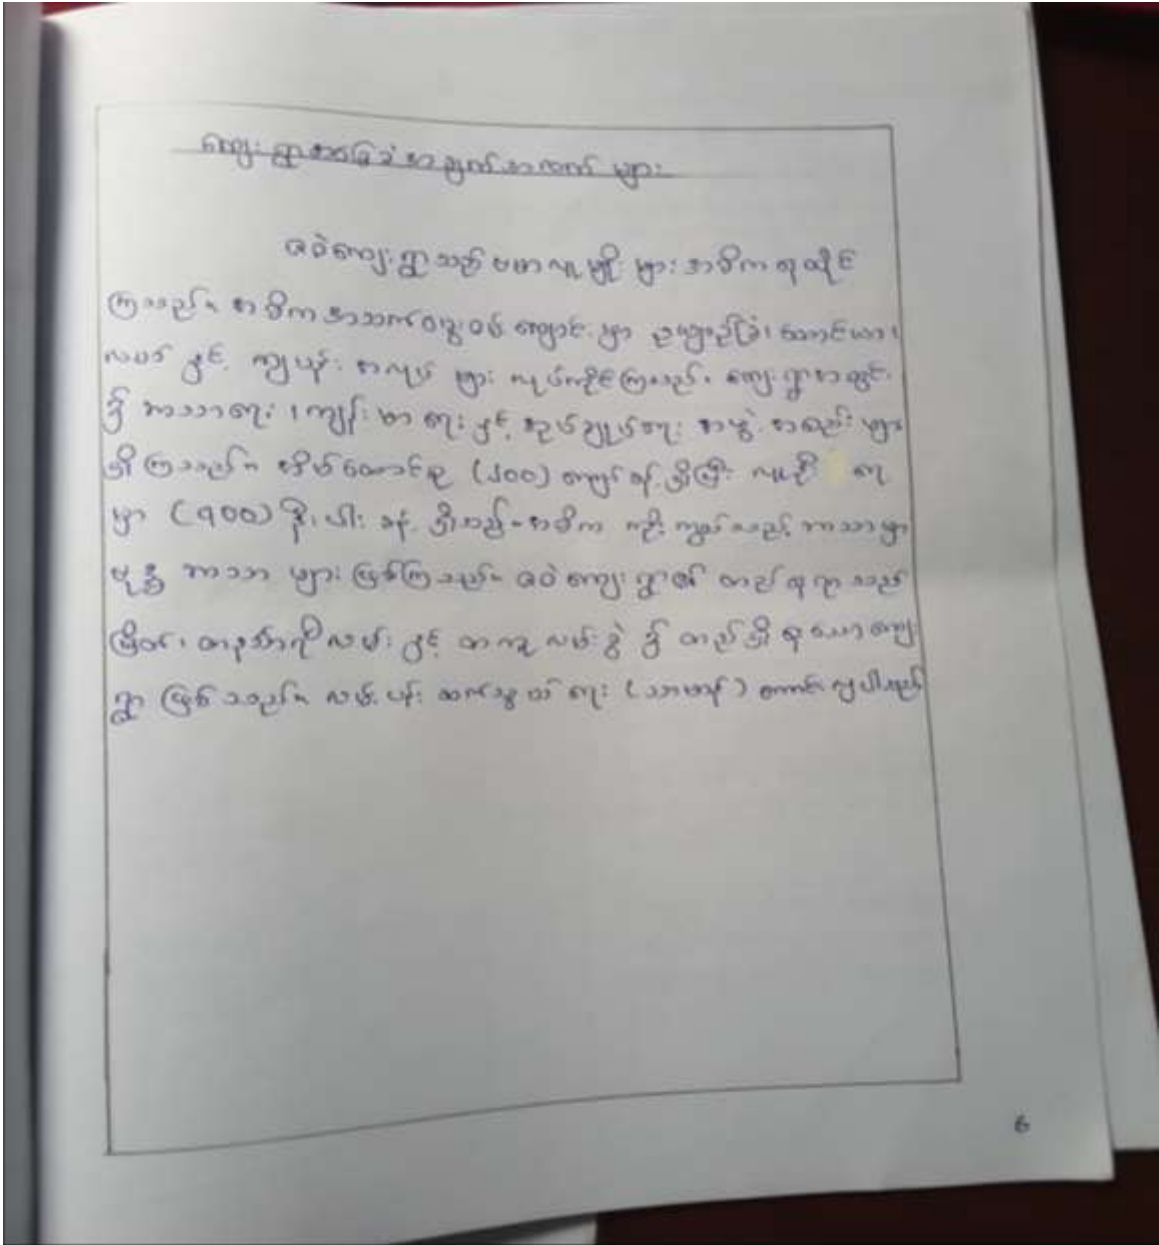 ကျေးရွာအခြေခံအချက်အလက်များ
ဇဝဲကျေးရွာသည် ဗမာလူမျိုးများ အဓိကနေထိုင်
ကြသည်။ အဓိကအသက်မွေးဝမ်းကျောင်းမှာ ဥယျာဉ်ခြံ၊ တောင်ယာ၊
လယ် နှင့် ကျပန်း အလုပ် များ လုပ်ကိုင်ကြသည်။ ကျေးရွာအတွင်း
၌ ဘာသာရေး ၊ ကျန်းမာရေး နှင့် အုပ်ချုပ်ရေး အဖွဲ့ အစည်း များ
ရှိကြသည်။ အိမ်ထောင်စု (၂၀၀) ကျော်ခန့် ရှိပြီး လူဦး ရေ
မှာ (၇၀၀) ဦး ခန့် ရှိသည်။ အဓိက ကိုးကွယ်သည့် ဘာသာမှာ
ဗုဒ္ဓ ဘာသာ များ ဖြစ်ကြသည်။ ဇဝဲ ကျေးရွာ၏ တည်နေရာ သည်
မြိတ်၊ တနင်္သာရီလမ်း နှင့် တကူ လမ်းခွဲ ၌ တည်ရှိနေသော ကျေး
ရွာ ဖြစ်သည်။ လမ်းပန်း ဆက်သွယ်ရေး ကောင်းမွန်ပါသည်
6